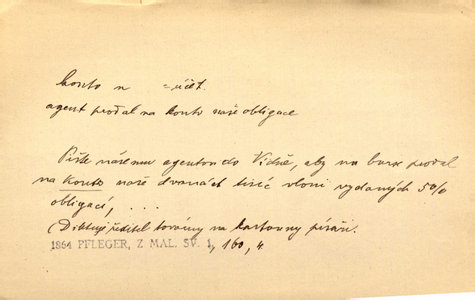 konto n =účet.
agent prodal na konto naše obligace
Pište našemu agentovi do Vídně, aby na burse prodal
na konto naše dvanáct tisíc vloni vydaných 5%
obligací, . . .
(Diktuje ředitel továrny na kartouny písaři.
1864 PFLEGER, Z MAL. SV. 1, 160, 4.